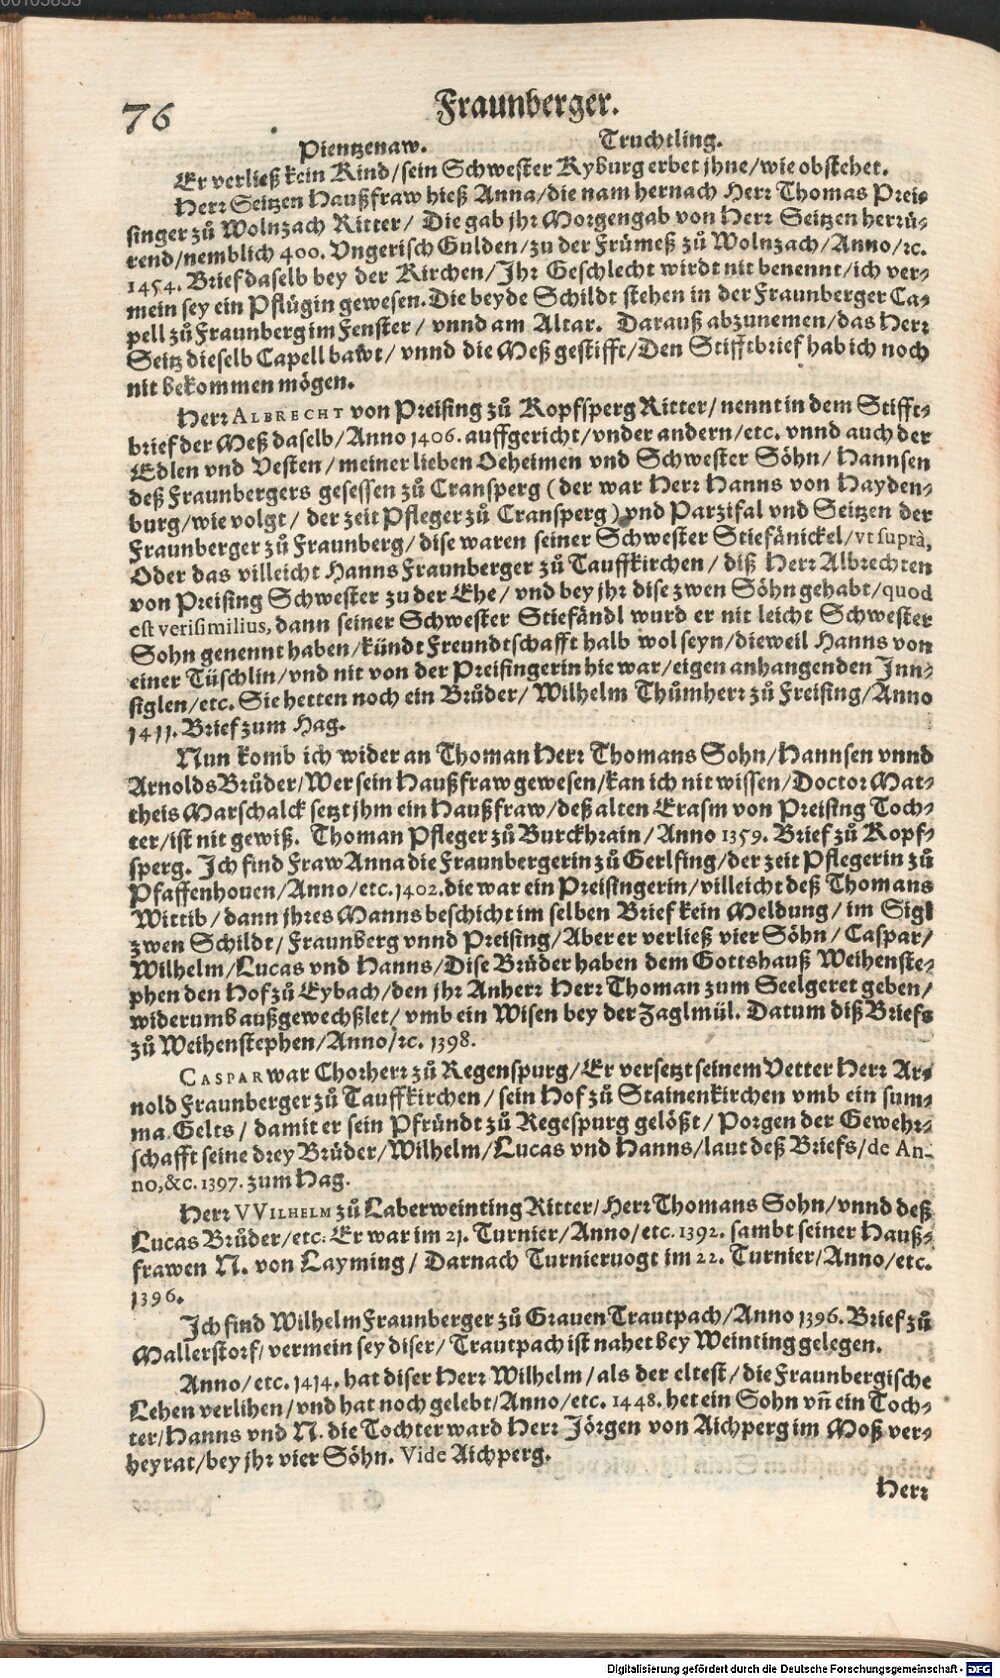 76
Fraunberger.
Pientzenaw. Truchtling.
Er verließ kein Kind/sein Schwester Kyburg erbet jhne/wie obstehet.
Herr Seitzen Haußfraw hieß Anna/die nam hernach Herr Thomas Prei⸗
singer zů Wolnzach Ritter/ Die gab jhr Morgengab von Herr Seitzen herrü⸗
rend/nemblich 400. Vngerisch Gulden/zu der Frümeß zů Wolnzach/Anno/ꝛc.
1454. Brief daselb bey der Kirchen/Jhr Geschlecht wirdt nit benennt/ich ver⸗
mein sey ein Pflügin gewesen. Die beyde Schildt stehen in der Fraunberger Ca⸗
pell zů Fraunberg im Fenster/ vnnd am Altar. Darauß abzunemen/das Herr
Seitz dieselb Capell bawt/ vnnd die Meß gestifft/Den Stifftbrief hab ich noch
nit bekommen mögen.
Herr ALBRECHT von Preising zů Kopfsperg Ritter/nennt in dem Stifft⸗
brief der Meß daselb/Anno 1406. auffgericht/vnder andern/etc. vnnd auch der
Edlen vnd Vesten/meiner lieben Oeheimen vnd Schwester Söhn/ Hannsen
deß Fraunbergers gesessen zů Cransperg (der war Herr Hanns von Hayden⸗
burg/wie volgt/ der zeit Pfleger zů Cransperg) vnd Parzifal vnd Seitzen der
Fraunberger zů Fraunberg/dise waren seiner Schwester Stiefänickel/vt suprà,
Oder das villeicht Hanns Fraunberger zů Tauffkirchen/ diß Herr Albrechten
von Preising Schwester zu der Ehe/ vnd bey jhr dise zwen Söhn gehabt/quod
est verisimilius, dann seiner Schwester Stiefändl wurd er nit leicht Schwester
Sohn genennt haben/kündt Freundtschafft halb wol seyn/dieweil Hanns von
einer Tüschlin/vnd nit von der Preisingerin hie war/eigen anhangenden Inn⸗
siglen/etc. Sie hetten noch ein Brůder/ Wilhelm Thůmherr zů Freising/Anno
1411. Brief zum Hag.
Nun komb ich wider an Thoman Herr Thomans Sohn/Hannsen vnnd
Arnolds Brůder/Wer sein Haußfraw gewesen/kan ich nit wissen/Doctor Mat⸗
theis Marschalck setzt jhm ein Haußfraw/deß alten Erasm von Preising Toch⸗
ter/ist nit gewiß. Thoman Pfleger zů Burckhrain/Anno 1359. Brief zů Kopf⸗
sperg. Ich find Fraw Anna die Fraunbergerin zů Gerlfing/der zeit Pflegerin zů
Pfaffenhouen/Anno/etc. 1402. die war ein Preisingerin/villeicht deß Thomans
Wittib/dann jhres Manns beschicht im selben Brief kein Meldung/im Sigl
zwen Schildt/Fraunberg vnnd Preising/Aber er verließ vier Söhn/Caspar/
Wilhelm/Lucas vnd Hanns/Dise Brüder haben dem Gottshauß Weihenste⸗
phen den Hof zů Eybach/den jhr Anherr Herr Thoman zum Seelgeret geben/
widerumb außgewechßlet/ vmb ein Wisen bey der Zaglmül. Datum diß Briefs
zů Weihenstephen/Anno/ꝛc. 1398.
CASPAR war Chorherr zů Regenspurg/Er versetzt seinem Vetter Herr Ar⸗
nold Fraunberger zů Tauffkirchen/ sein Hof zů Stainenkirchen vmb ein sum⸗
ma Gelts/ damit er sein Pfründt zů Regespurg gelößt/ Porgen der Gewehr⸗
schafft seine drey Brüder/Wilhelm/Lucas vnd Hanns/laut deß Briefs/de An-
no,&c. 1397. zum Hag.
Herr VVILHELM zů Laberweinting Ritter/Herr Thomans Sohn/vnnd deß
Lucas Brůder/etc. Er war im 21. Turnier/Anno/etc. 1392. sambt seiner Hauß⸗
frawen N. von Layming/ Darnach Turnieruogt im 22. Turnier/Anno/etc.
1396.
Ich find Wilhelm Fraunberger zů Grauen Trautpach/Anno 1396. Brief zů
Mallerstorf/vermein sey diser/ Trautpach ist nahet bey Weinting gelegen.
Anno/etc. 1414. hat diser Herr Wilhelm/als der eltest/die Fraunbergische
Lehen verlihen/vnd hat noch gelebt/Anno/etc. 1448. het ein Sohn vñ ein Toch⸗
ter/Hanns vnd N. die Tochter ward Herr Jörgen von Aichperg im Moß ver⸗
heyrat/bey jhr vier Söhn. Vide Aichperg.
Herr
Digitalisierung gefördert durch die Deutsche Forschungsgemeinschaft - DFG